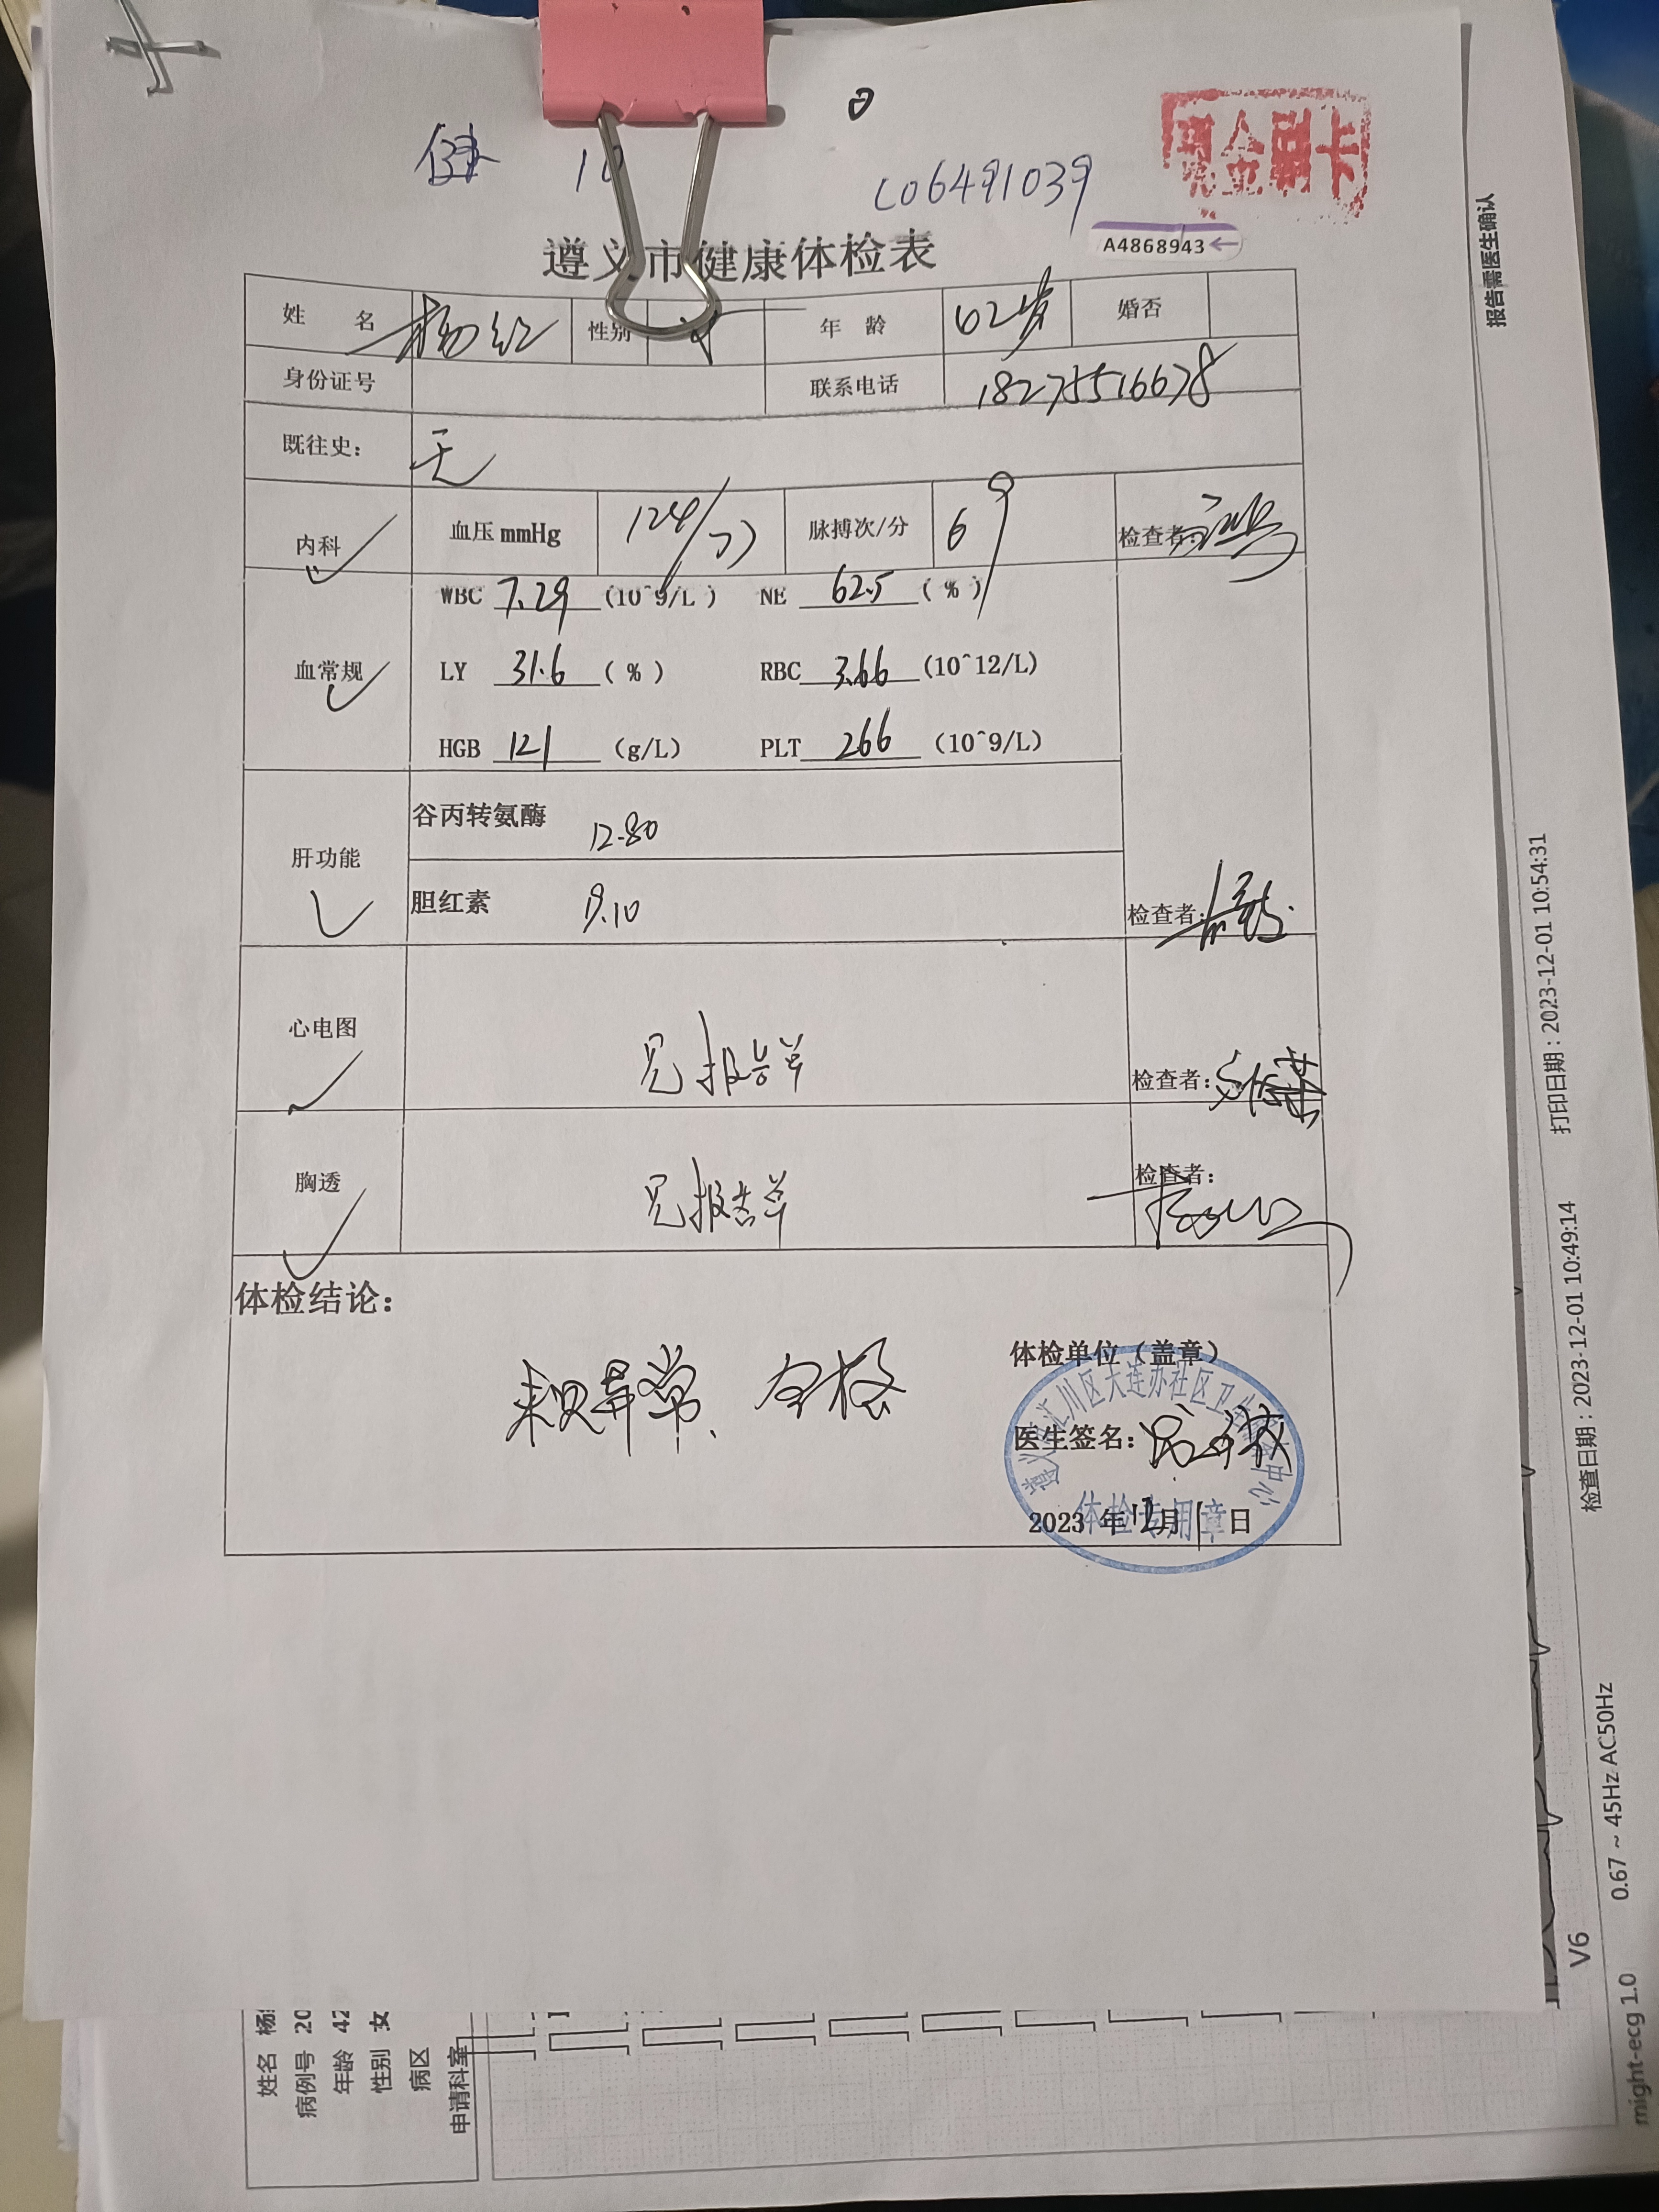 健 10
C06491039
现金刷卡
A4868943
遵义市健康体检表
姓 名 杨红 性别 女 年 龄 62岁 婚否
身份证号 联系电话 18275516678
既往史: 无
内科 血压 mmHg 124/77 脉搏次/分 69 检查者:
WBC 7.29 (10^9/L) NE 62.5 (%)
血常规 LY 31.6 (%) RBC 3.66 (10^12/L)
HGB 121 (g/L) PLT 266 (10^9/L)
肝功能 谷丙转氨酶 12.80
胆红素 9.10 检查者:
心电图 见报告单 检查者:
胸透 见报告单 检查者:
体检结论:
未见异常、合格
体检单位(盖章)
医生签名:
2023 年 12 月 1 日
汇川区大连办社区卫
中心
体检专用章
报告需医生确认
打印日期: 2023-12-01 10:54:31
检查日期: 2023-12-01 10:49:14
0.67 ~ 45Hz AC50Hz
V6
might-ecg 1.0
姓名 杨
病例号 20
年龄 42
性别 女
病区
申请科室